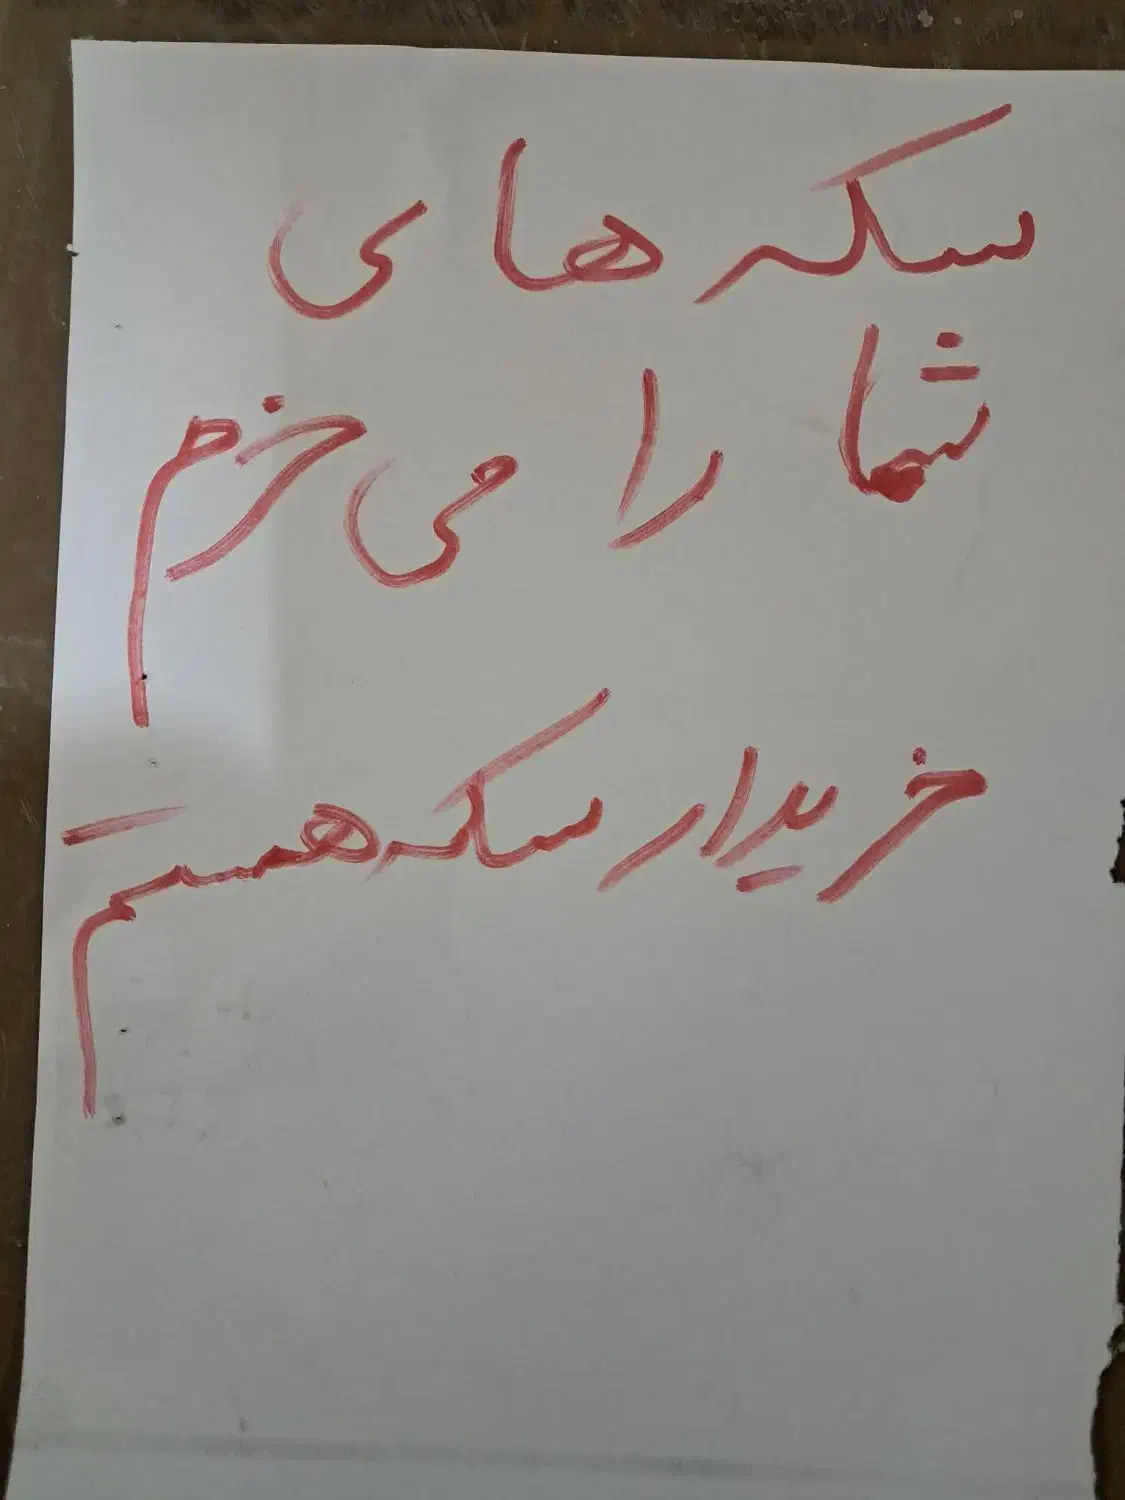 سکه های
شما را می خرم
خریدار سکه هستم